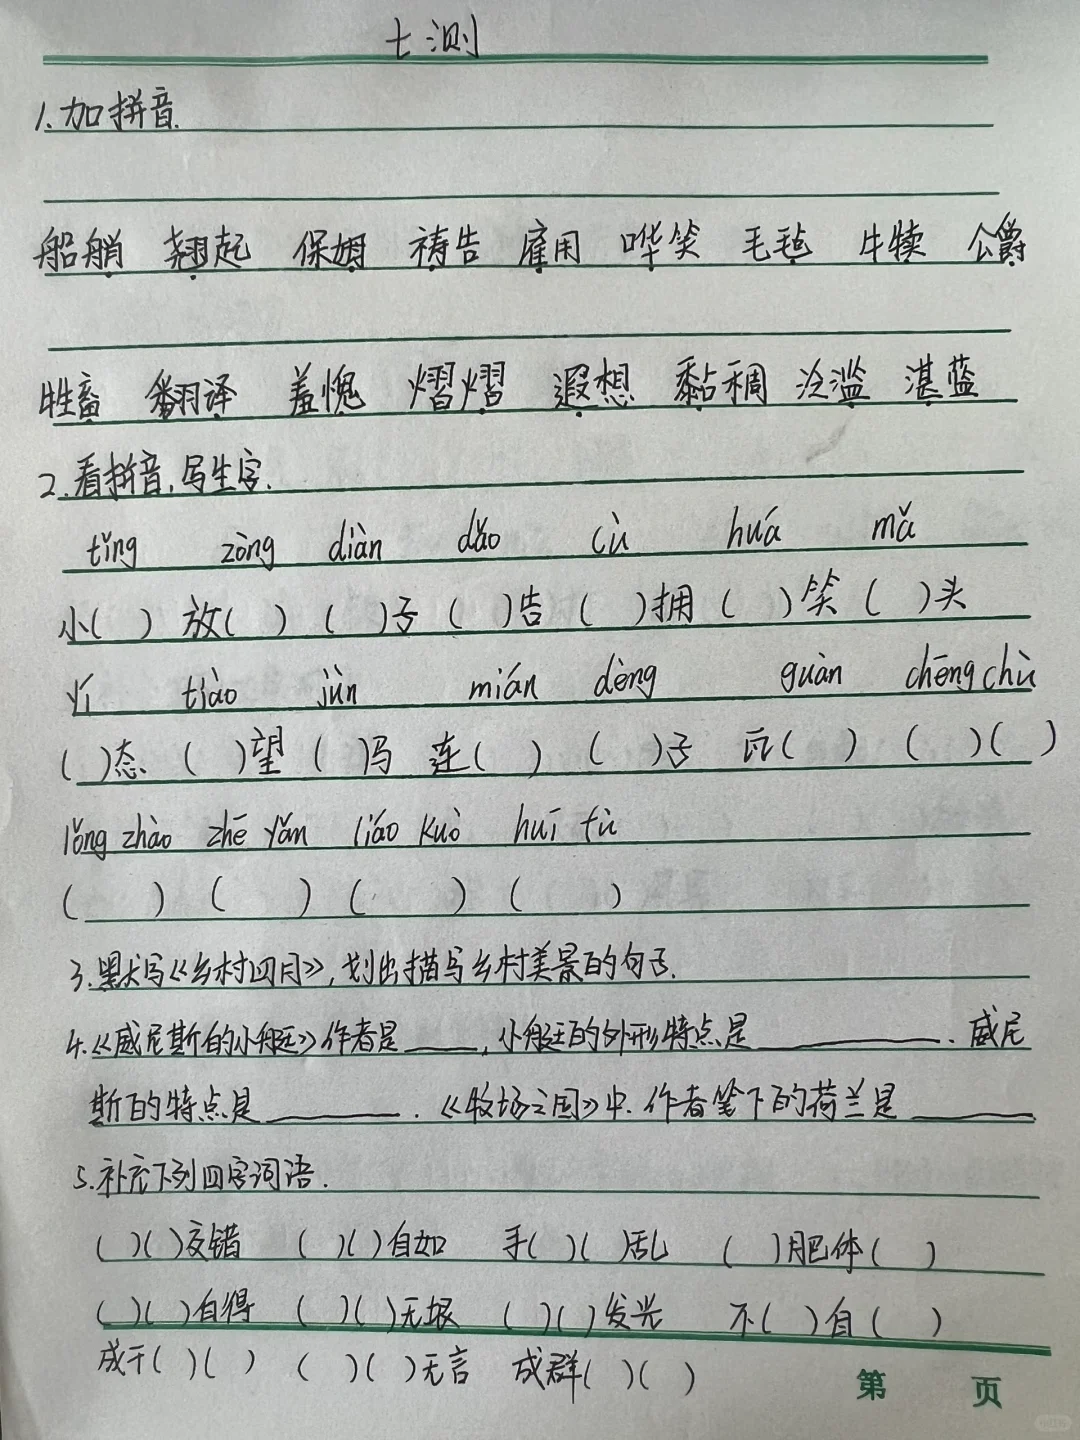 七测
1.加拼音.
船艄 翘起 保姆 祷告 雇用 哗笑 毛毡 牛犊 公爵
牲畜 翻译 羞愧 熠熠 遐想 黏稠 泛滥 湛蓝
2.看拼音,写生字.
tǐng zòng diàn dǎo cù huá mǎ
小( ) 放( ) ( )子 ( )告 ( )拥 ( )笑 ( )头
yí tiào jùn mián dèng guàn chēng chù
( )态 ( )望 ( )马 连( ) ( )子 瓦( ) ( )( )
lǒng zhào zhē yǎn liáo kuò huī tù
( ) ( ) ( ) ( )
3.默写《乡村四月》,划出描写乡村美景的句子.
4.《威尼斯的小艇》作者是____,小艇的外形特点是________.威尼
斯的特点是______.《牧场之国》中.作者笔下的荷兰是______
5.补充下列四字词语.
( )( )交错 ( )( )自如 手( )( )乱 ( )肥体( )
( )( )自得 ( )( )无垠 ( )( )发光 不( )自( )
成千( )( ) ( )( )无言 成群( )( )
第 页